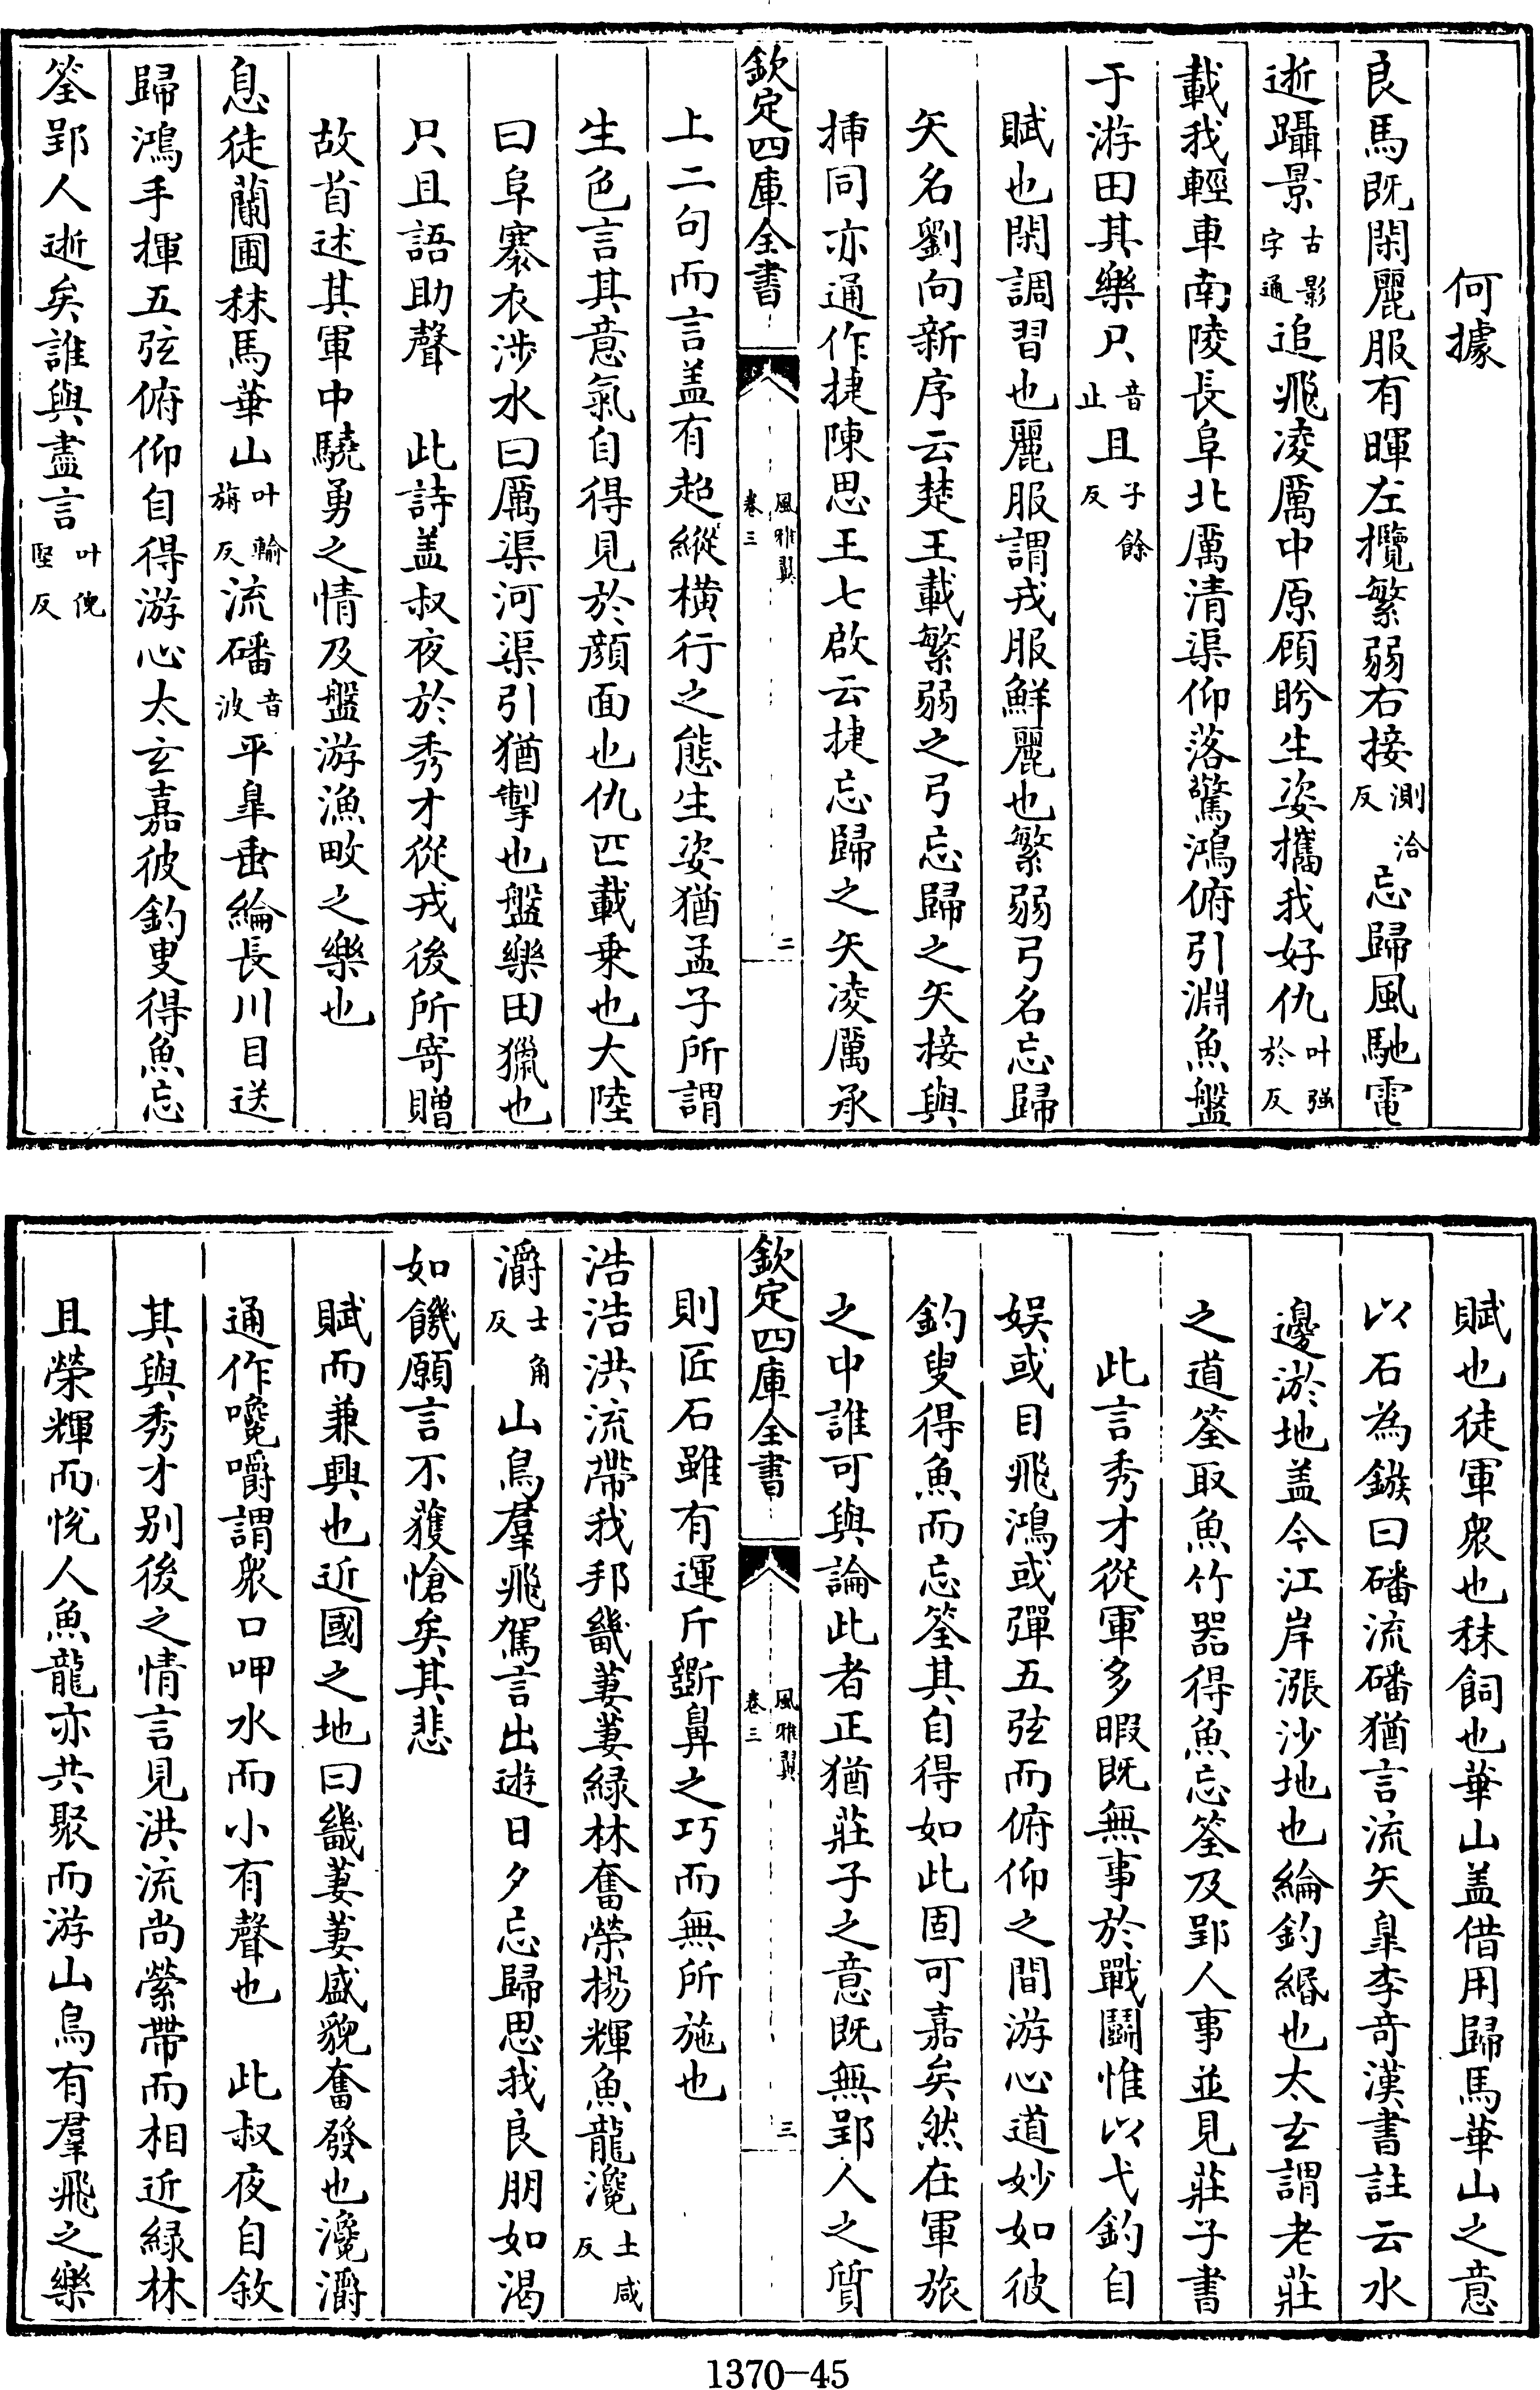 何據
良馬既閑麗服有暉左攬繁弱右接測洽反忘歸風馳電
逝躡景古影字通追飛凌厲中原顧盼生姿攜我好仇叶強於反
載我輕車南陵長阜北厲清渠仰落驚鴻俯引淵魚盤
于游田其樂只音止且子餘反
賦也閑調習也麗服謂戎服鮮麗也繁弱弓名忘歸
矢名劉向新序云楚王載繁弱之弓忘歸之矢接與
揷同亦通作捷陳思王七啟云捷忘歸之矢凌厲承
欽定四庫全書
風雅翼
卷三
二
上二句而言盖有超縱橫行之態生姿猶孟子所謂
生色言其意氣自得見於顔面也仇匹載乗也大陸
曰阜褰衣涉水曰厲渠河渠引猶掣也盤樂田獵也
只且語助聲 此詩盖叔夜於秀才從戎後所寄贈
故首述其軍中驍勇之情及盤游漁畋之樂也
息徒蘭圃秣馬華山叶輸旃反流磻音波平臯垂綸長川目送
歸鴻手揮五弦俯仰自得游心太玄嘉彼釣叟得魚忘
筌郢人逝矣誰與盡言叶倪堅反
賦也徒軍衆也秣飼也華山盖借用歸馬華山之意
以石為鏃曰磻流磻猶言流矢臯李竒漢書註云水
邊淤地盖今江岸漲沙地也綸釣緡也太玄謂老莊
之道筌取魚竹器得魚忘筌及郢人事並見莊子書
此言秀才從軍多暇既無事於戰鬬惟以弋釣自
娱或目飛鴻或彈五弦而俯仰之間游心道妙如彼
釣叟得魚而忘筌其自得如此固可嘉矣然在軍旅
之中誰可與論此者正猶莊子之意既無郢人之質
欽定四庫全書
風雅翼
卷三
三
則匠石雖有運斤斵鼻之巧而無所施也
浩浩洪流帶我邦畿萋萋緑林奮榮揚輝魚龍瀺士咸反
灂士角反山鳥羣飛駕言出遊日夕忘歸思我良朋如渴
如饑願言不獲愴矣其悲
賦而兼興也近國之地曰畿萋萋盛貌奮發也瀺灂
通作嚵嚼謂衆口呷水而小有聲也 此叔夜自敘
其與秀才别後之情言見洪流尚縈帶而相近緑林
且榮輝而悅人魚龍亦共聚而游山鳥有羣飛之樂
1370-45